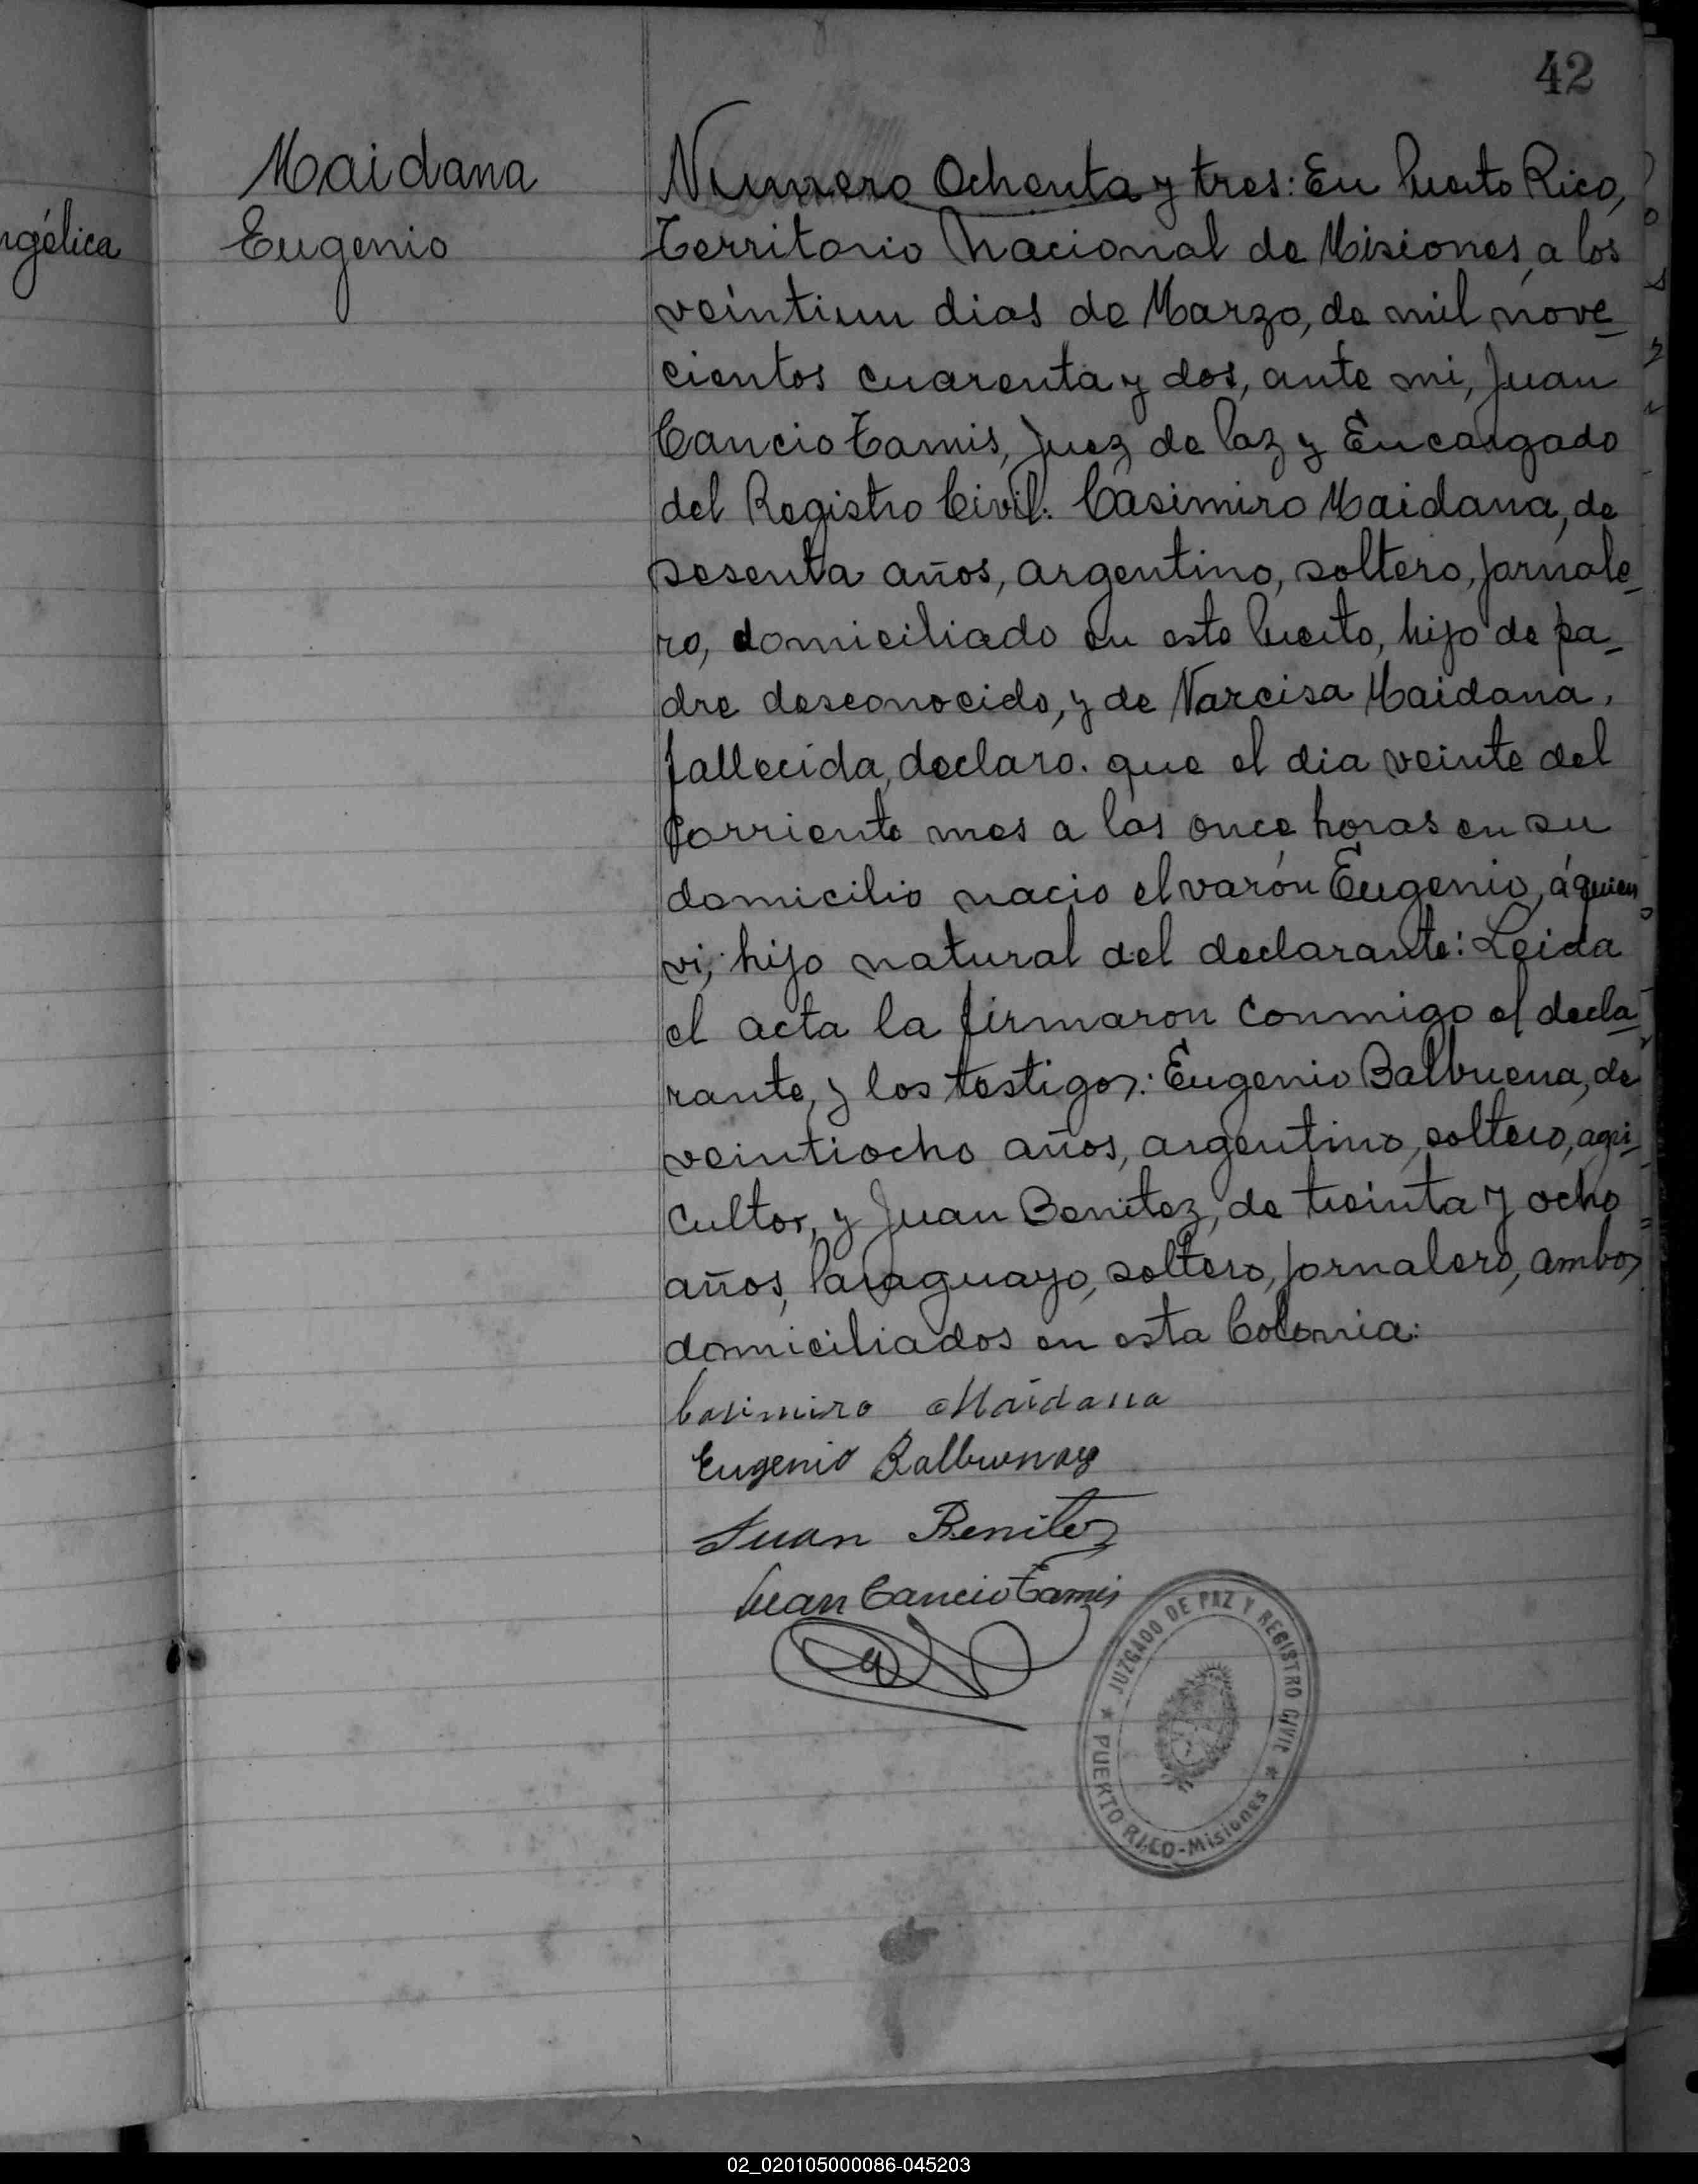 42
ngélica
Maidana
Eugenio
Numero Ochenta y tres: En Puerto Rico,
Territorio Nacional de Misiones, a los
veintiun dias de Marzo, de mil nove
cientos cuarenta y dos, ante mi, Juan
Cancio Tamis, Juez de Paz y Encargado
del Registro Civil: Casimiro Maidana, de
sesenta años, argentino, soltero, jornale-
ro, domiciliado en este Puerto, hijo de pa-
dre desconocido, y de Narcisa Maidana,
fallecida, declaro. que el dia veinte del
corriente mes a las once horas en su
domicilio nacio el varón Eugenio, á quien
vi, hijo natural del declarante: Leida
el acta la firmaron conmigo el decla-
rante, y los testigos: Eugenio Balbuena, de
veintiocho años, argentino, soltero, agri-
cultor, y Juan Benitez, de treinta y ocho
años, Paraguayo, soltero, jornalero, ambos
domiciliados en esta Colonia:
Casimiro Maidana
Eugenio Balbuena
Juan Benitez
Juan Cancio Tamis
JUZGADO DE PAZ Y REGISTRO CIVIL
PUERTO RICO - Misiones
02_020105000086-045203